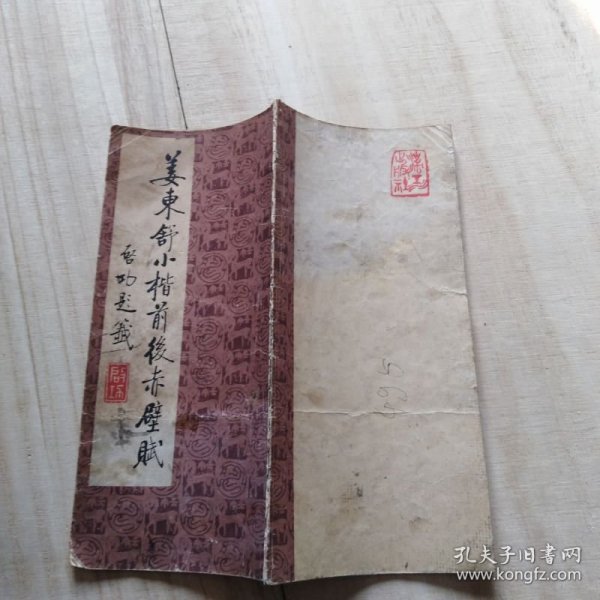 姜東舒小楷前後赤壁賦
啓功題籤
出版社
孔夫子旧书网
www.kongfz.com